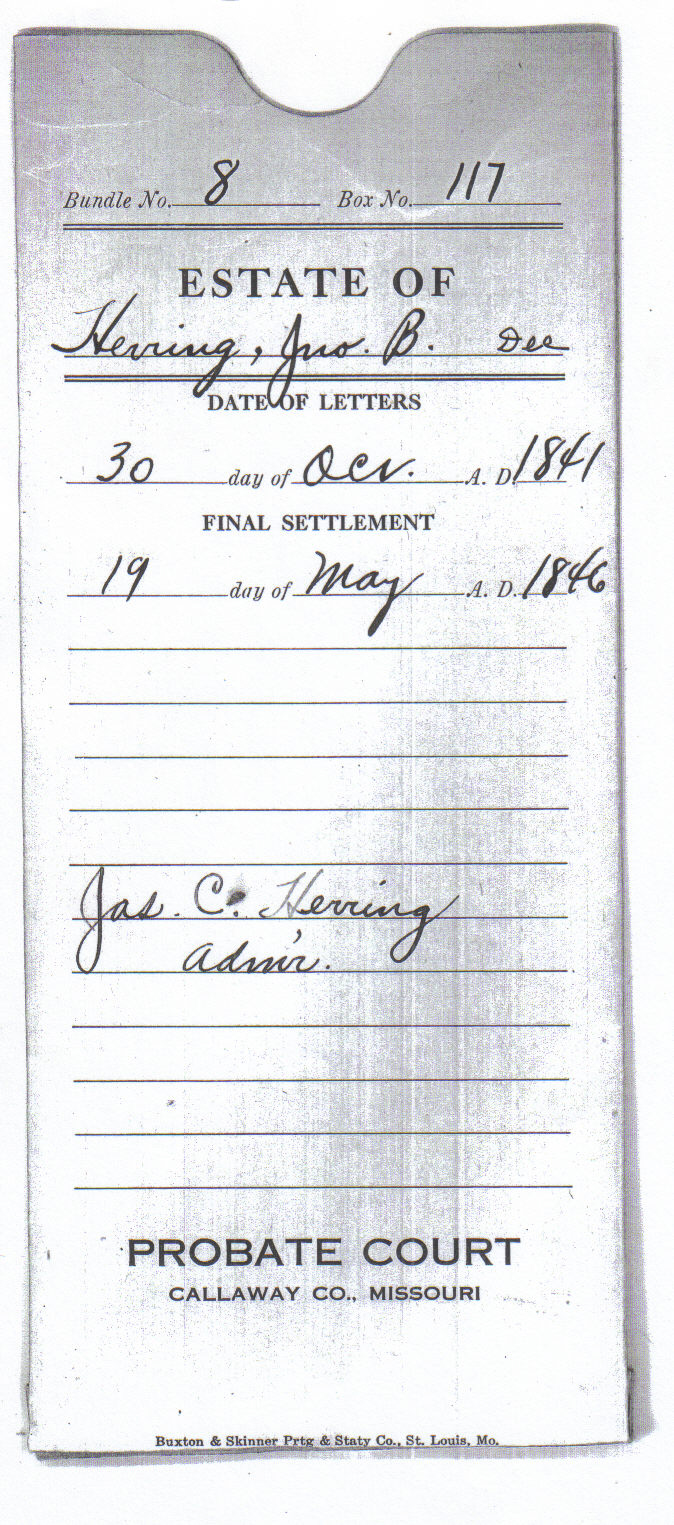 Bundle No. 8 Box No. 117
ESTATE OF
Herring, Jno. B. Dec
DATE OF LETTERS
30 day of Oct. A. D. 1841
FINAL SETTLEMENT
19 day of May A. D. 1846
Jas. C. Herring
Adm'r.
PROBATE COURT
CALLAWAY CO., MISSOURI
Buxton & Skinner Prtg & Staty Co., St. Louis, Mo.